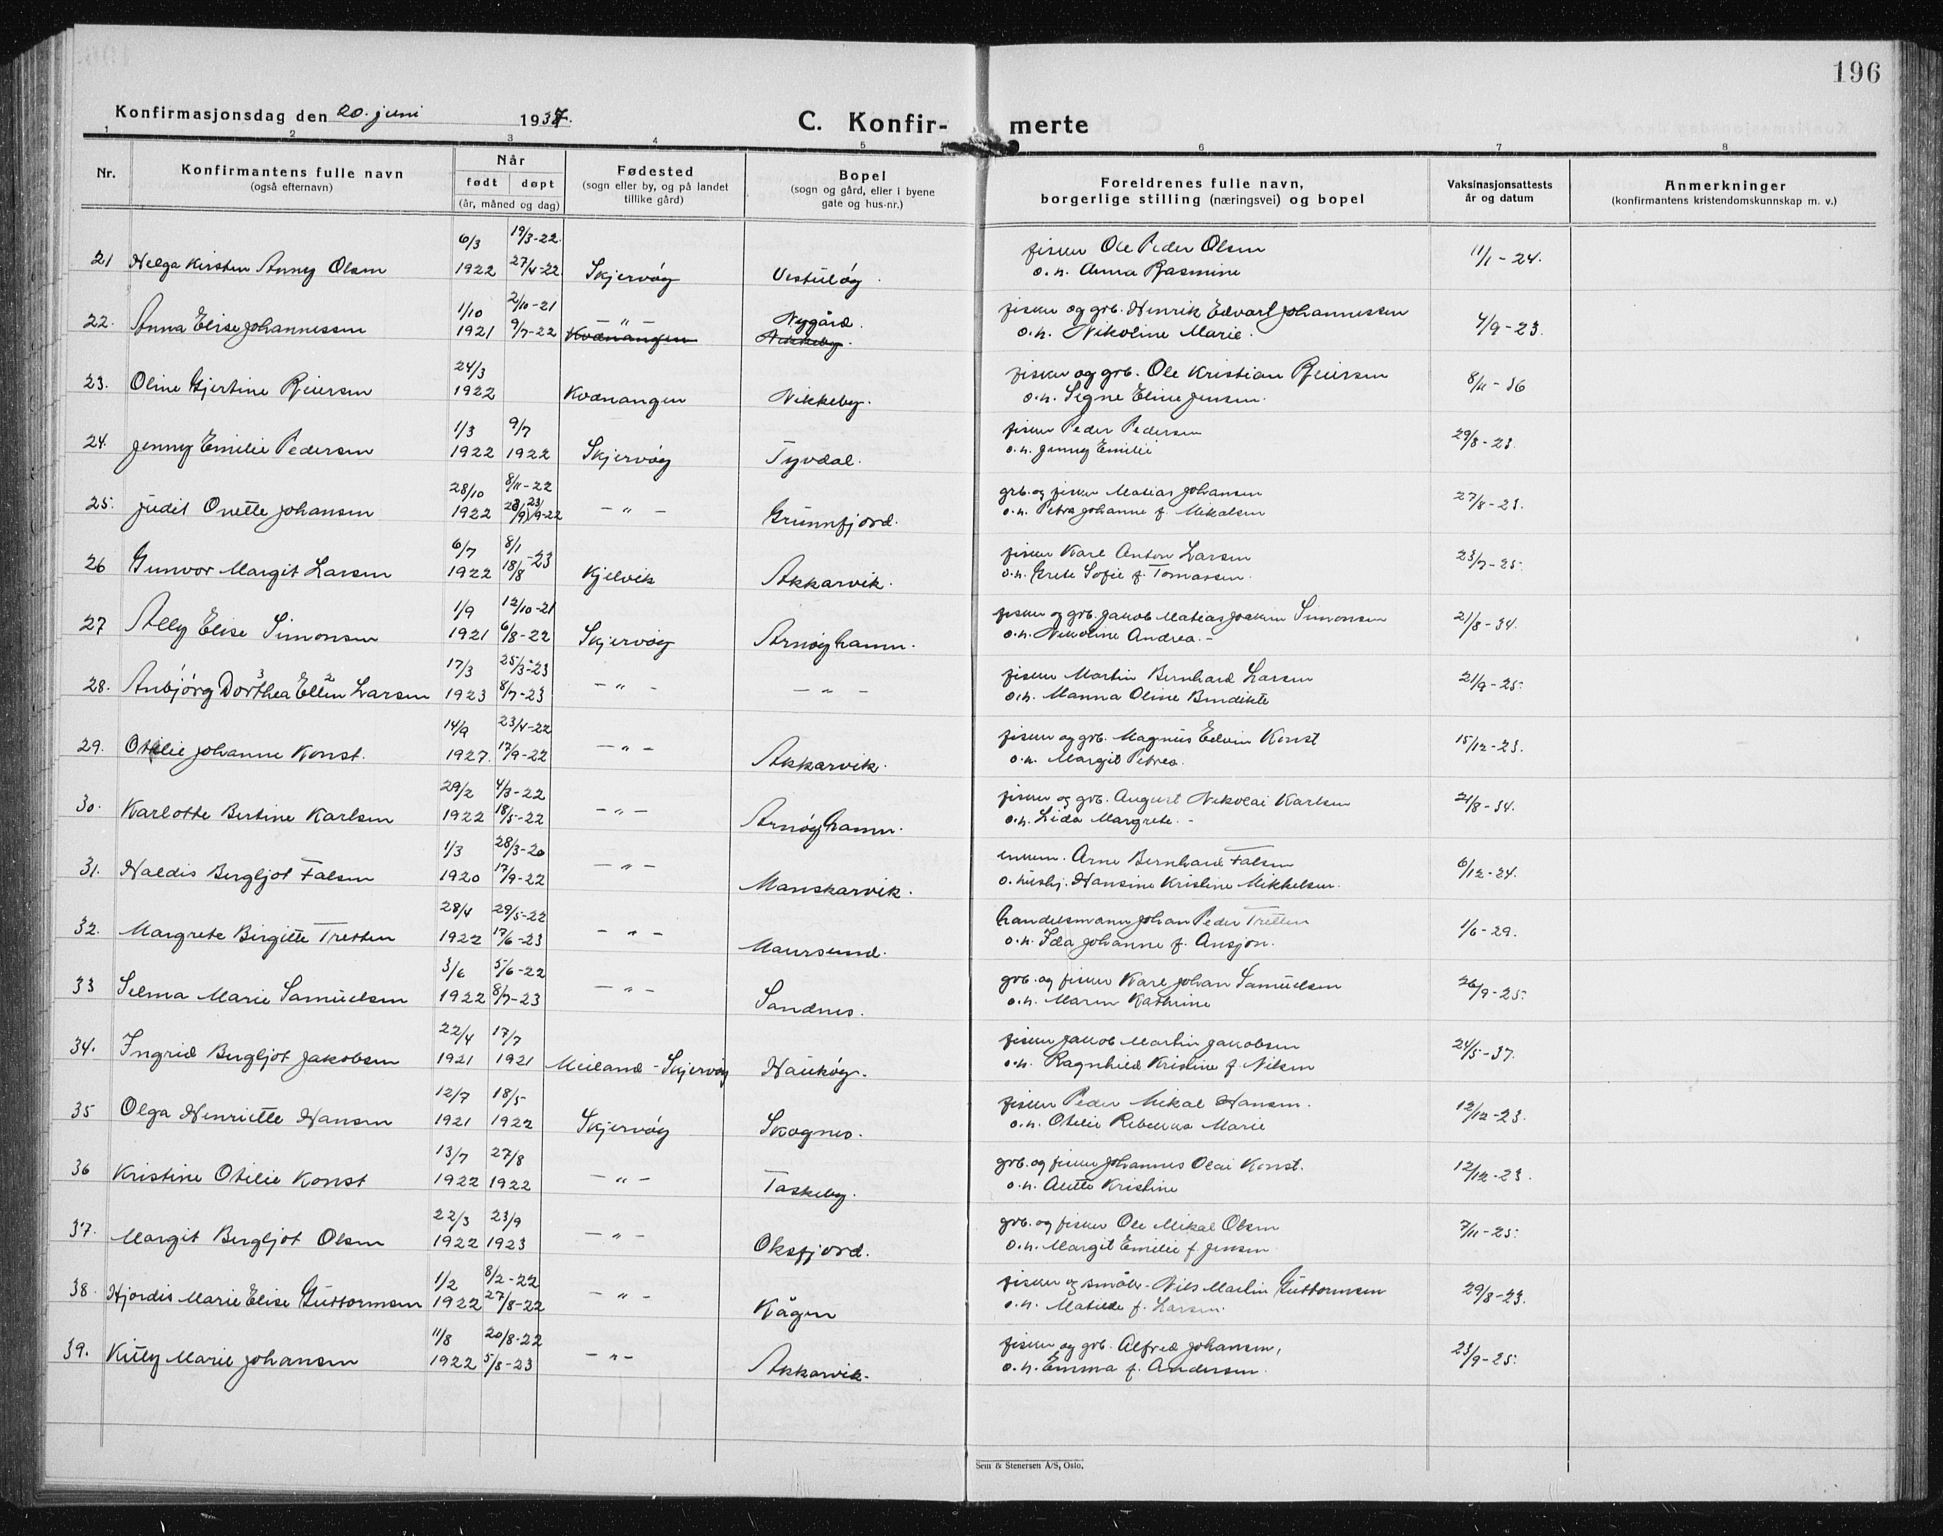 196
Konfirmasjonsdag den 20. juni 1937.
C. Konfir- merte
1 2 3 4 5 6 7 8
Nr.
Konfirmantens fulle navn
(også efternavn)
Når
født døpt
(år, måned og dag)
Fødested
(sogn eller by, og på landet
tillike gård)
Bopel
(sogn og gård, eller i byene
gate og hus-nr.)
Foreldrenes fulle navn,
borgerlige stilling (næringsvei) og bopel
Vaksinasjonsattests
år og datum
Anmerkninger
(konfirmantens kristendomskunnskap m. v.)
6/3 19/3-22. fisker Ole Peder Olsen
21 Helga Kirsten Anny Olsen 1922 27/4-22 Skjervøy o.h. Anna Rasmine 11/1-24.
1/10 2/10-21 — " — Nygård. fisker og grb. Henrik Edvart Johannessen
22. Anna Elise Johannessen 1921 9/7-22 Kvænangen Nikkeby. o.h. Nikoline Marie. 4/9-23.
24/3 fisker og grb. Ole Kristian Reiersen
23. Oline Gjertine Reiersen 1922 Kvænangen Nikkeby. o.h. Signe Eline Jensen. 8/11-36
1/3 9/7 fisker Peder Pedersen
24. Jenny Emilie Pedersen 1922 1922 Skjervøy Tyvdal. o.h. Jenny Emilie 29/8-23.
28/10 8/11-22 grb. og fisker Matias Johansen
25. Judit Onette Johansen 1922 — " — Grunnfjord. o.h. Petra Johanne f. Mikalsen 27/8-23.
6/7 8/1 -23 fisker Karl Anton Larsen
26 Gunvor Margit Larsen 1922 18/8 Kjelvik Akkarvik. o.h. Grete Sofie f. Tomassen. 23/7-25.
1/9 12/10-21 fisker og grb. Jakob Matias Joakim Simonsen
27 Ally Elise Simonsen 1921 6/8-22 Skjervøy Arnøyhamn. o.h. Nikoline Andrea.- 21/8-34.
17/3 25/3-23 fisker Martin Bernhard Larsen
28. Anbjørg Dorthea 3 Ellen 2 Larsen 1923 8/7-23 — " — — " — o.h. Manna Oline Bendikte 21/9-25.
14/9 23/4-22 fisker og grb. Magnus Edvin Konst
29. Otelie Johanne Konst. 1927. 17/9-22 — " — Akkarvik. o.h. Margit Petrea. 15/12-23.
29/2 4/3-22 fisker og grb. August Nikolai Karlsen
30. Karlotte Bertine Karlsen 1922 18/5-22 — " — Arnøyhamn. o.h. Lida Margrete.- 21/8-34.
1/3 28/3-20 Arne Bernhard Falsen
31. Haldis Bergljot Falsen 1920 17/9-22 — " — Manskarvik. o. hushj. Hansine Kristine Mikkelsen. 6/12-24.
28/4 29/5-22 handelsmann Johan Peder Tretten
32. Margrete Birgitte Tretten 1922 17/6-23 — " — Maursund. o.h. Ida Johanne f. Ansjøn. 1/6-29.
3/6 5/6-22 grb. og fisker Karl Johan Samuelsen
33 Selma Marie Samuelsen 1922 8/7-23 — " — Sandnes. o.h. Maren Kathrine 26/9-25.
22/4 17/7 fisker Jakob Martin Jakobsen
34. Ingrid Bergljot Jakobsen 1921 1921 Meiland - Skjervøy Haukøy. o.h. Ragnhild Kristine f. Nilsen 24/5-37.
12/7 18/5 fisker Peder Mikal Hansen.
35 Olga Henriette Hansen 1921 1922 Skjervøy Skognes. o.h. Otelie Rebekka Marie 12/12-23.
13/7 27/8 grb. og fisker Johannes Olai Konst.
36 Kristine Otilie Konst 1922 1922 — " — Taskeby. o.h. Alette Kristine 12/12-23.
22/3 23/9 grb. og fisker Ole Mikal Olsen
37. Margit Bergljot Olsen 1922 1923 — " — Oksfjord. o.h. Margit Emilie f. Jensen 7/11-25.
1/2 8/2-22 fisker og småbr- Nils Martin Guttormsen
38. Hjordis Marie Elise Guttormsen 1922 27/8-22 — " — Kågen o.h. Matilde f. Larsen. 29/8-23.
11/8 20/8-22 fisker og grb. Alfred Johansen,
39. Killy Marie Johansen 1922 5/8-23 — " — Akkarvik. o.h. Emma f. Andersen. 23/9-25.
Sem & Stenersen A/S, Oslo.